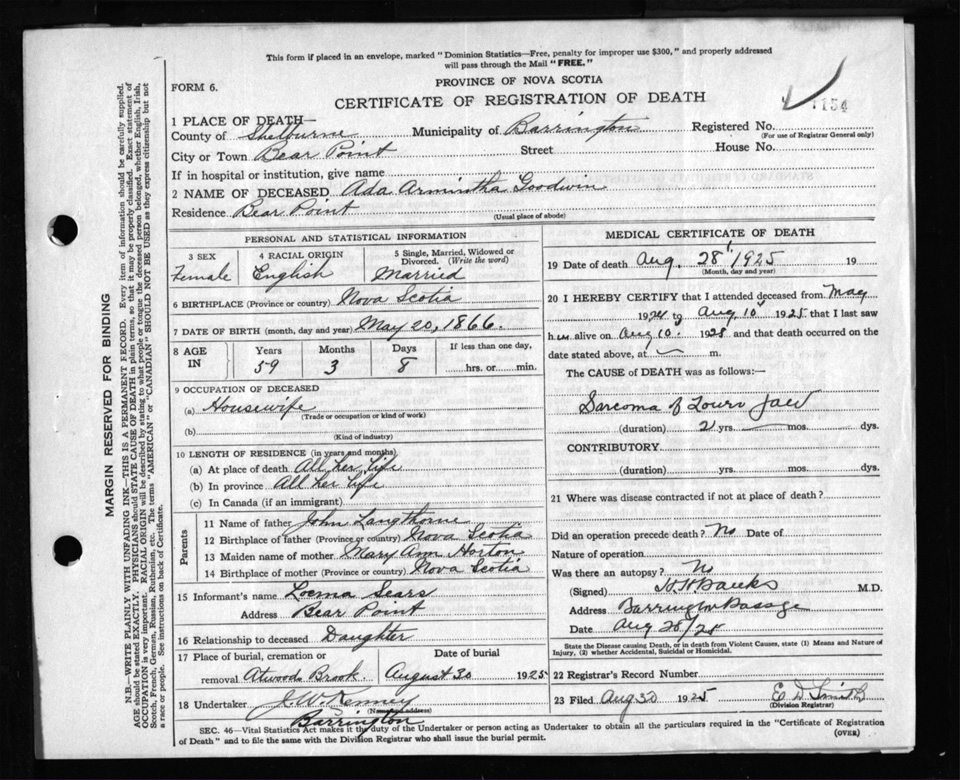 This form if placed in an envelope, marked "Dominion Statistics—Free, penalty for improper use $300," and properly addressed
will pass through the Mail "FREE."
FORM 6.
PROVINCE OF NOVA SCOTIA
CERTIFICATE OF REGISTRATION OF DEATH
1154
1 PLACE OF DEATH—
County of Shelburne Municipality of Barrington Registered No.
(For use of Registrar General only)
City or Town Bear Point Street House No.
If in hospital or institution, give name
2 NAME OF DECEASED Ada Armintha Goodwin
Residence Bear Point
(Usual place of abode)
PERSONAL AND STATISTICAL INFORMATION
3 SEX 4 RACIAL ORIGIN 5 Single, Married, Widowed or
Divorced. (Write the word)
Female English Married
6 BIRTHPLACE (Province or country) Nova Scotia
7 DATE OF BIRTH (month, day and year) May 20, 1866.
8 AGE IN Years Months Days If less than one day,
59 3 8 hrs. or min.
9 OCCUPATION OF DECEASED
(a) Housewife
(Trade or occupation or kind of work)
(b)
(Kind of industry)
10 LENGTH OF RESIDENCE (in years and months)
(a) At place of death All her life
(b) In province All her life
(c) In Canada (if an immigrant)
Parents
11 Name of father John Langthorne
12 Birthplace of father (Province or country) Nova Scotia
13 Maiden name of mother Mary Ann Horton
14 Birthplace of mother (Province or country) Nova Scotia
15 Informant's name Loema Sears
Address Bear Point
16 Relationship to deceased Daughter
17 Place of burial, cremation or Date of burial
removal Atwood Brook August 30 1925
18 Undertaker J. W. Kenney
(Name and address)
Barrington
MEDICAL CERTIFICATE OF DEATH
19 Date of death Aug. 28 1925 19
(Month, day and year)
20 I HEREBY CERTIFY that I attended deceased from May
1924 to Aug 10 1925 that I last saw
her alive on Aug 10. 1925 and that death occurred on the
date stated above, at m.
The CAUSE OF DEATH was as follows:—
Sarcoma of Lower Jaw
(duration) 2 yrs. mos. dys.
CONTRIBUTORY
(duration) yrs. mos. dys.
21 Where was disease contracted if not at place of death?
Did an operation precede death? No Date of
Nature of operation
Was there an autopsy? No
(Signed) Banks M.D.
Address Barrington Passage
Date Aug 28/25
State the Disease causing Death, or in death from Violent Causes, state (1) Means and Nature of
Injury, (2) whether Accidental, Suicidal or Homicidal.
22 Registrar's Record Number
23 Filed Aug 30 1925 E D Smith
(Division Registrar)
SEC. 46—Vital Statistics Act makes it the duty of the Undertaker or person acting as Undertaker to obtain all the particulars required in the "Certificate of Registration
of Death" and to file the same with the Division Registrar who shall issue the burial permit.
(OVER)
MARGIN RESERVED FOR BINDING
N.B.—WRITE PLAINLY WITH UNFADING INK—THIS IS A PERMANENT RECORD. Every item of information should be carefully supplied.
AGE should be stated EXACTLY. PHYSICIANS should STATE CAUSE OF DEATH in plain terms, so that it may be properly classified. Exact statement of
OCCUPATION is very important. RACIAL ORIGIN will be described by stating to what people or tongue the deceased person belonged, whether English, Irish,
Scotch, French, German, Russian, Ruthenian, etc. The terms "AMERICAN" or "CANADIAN" SHOULD NOT BE USED as they express citizenship but not
a race or people. See instructions on back of Certificate.